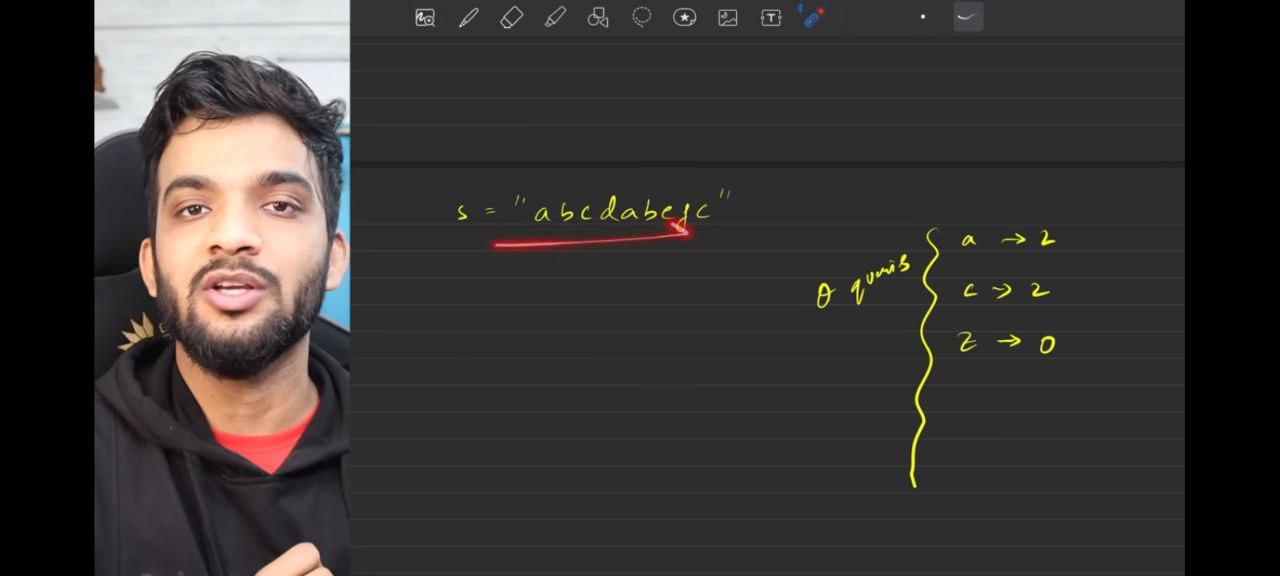 s = "abcdabefc"
a → 2
Q queries
c → 2
z → 0